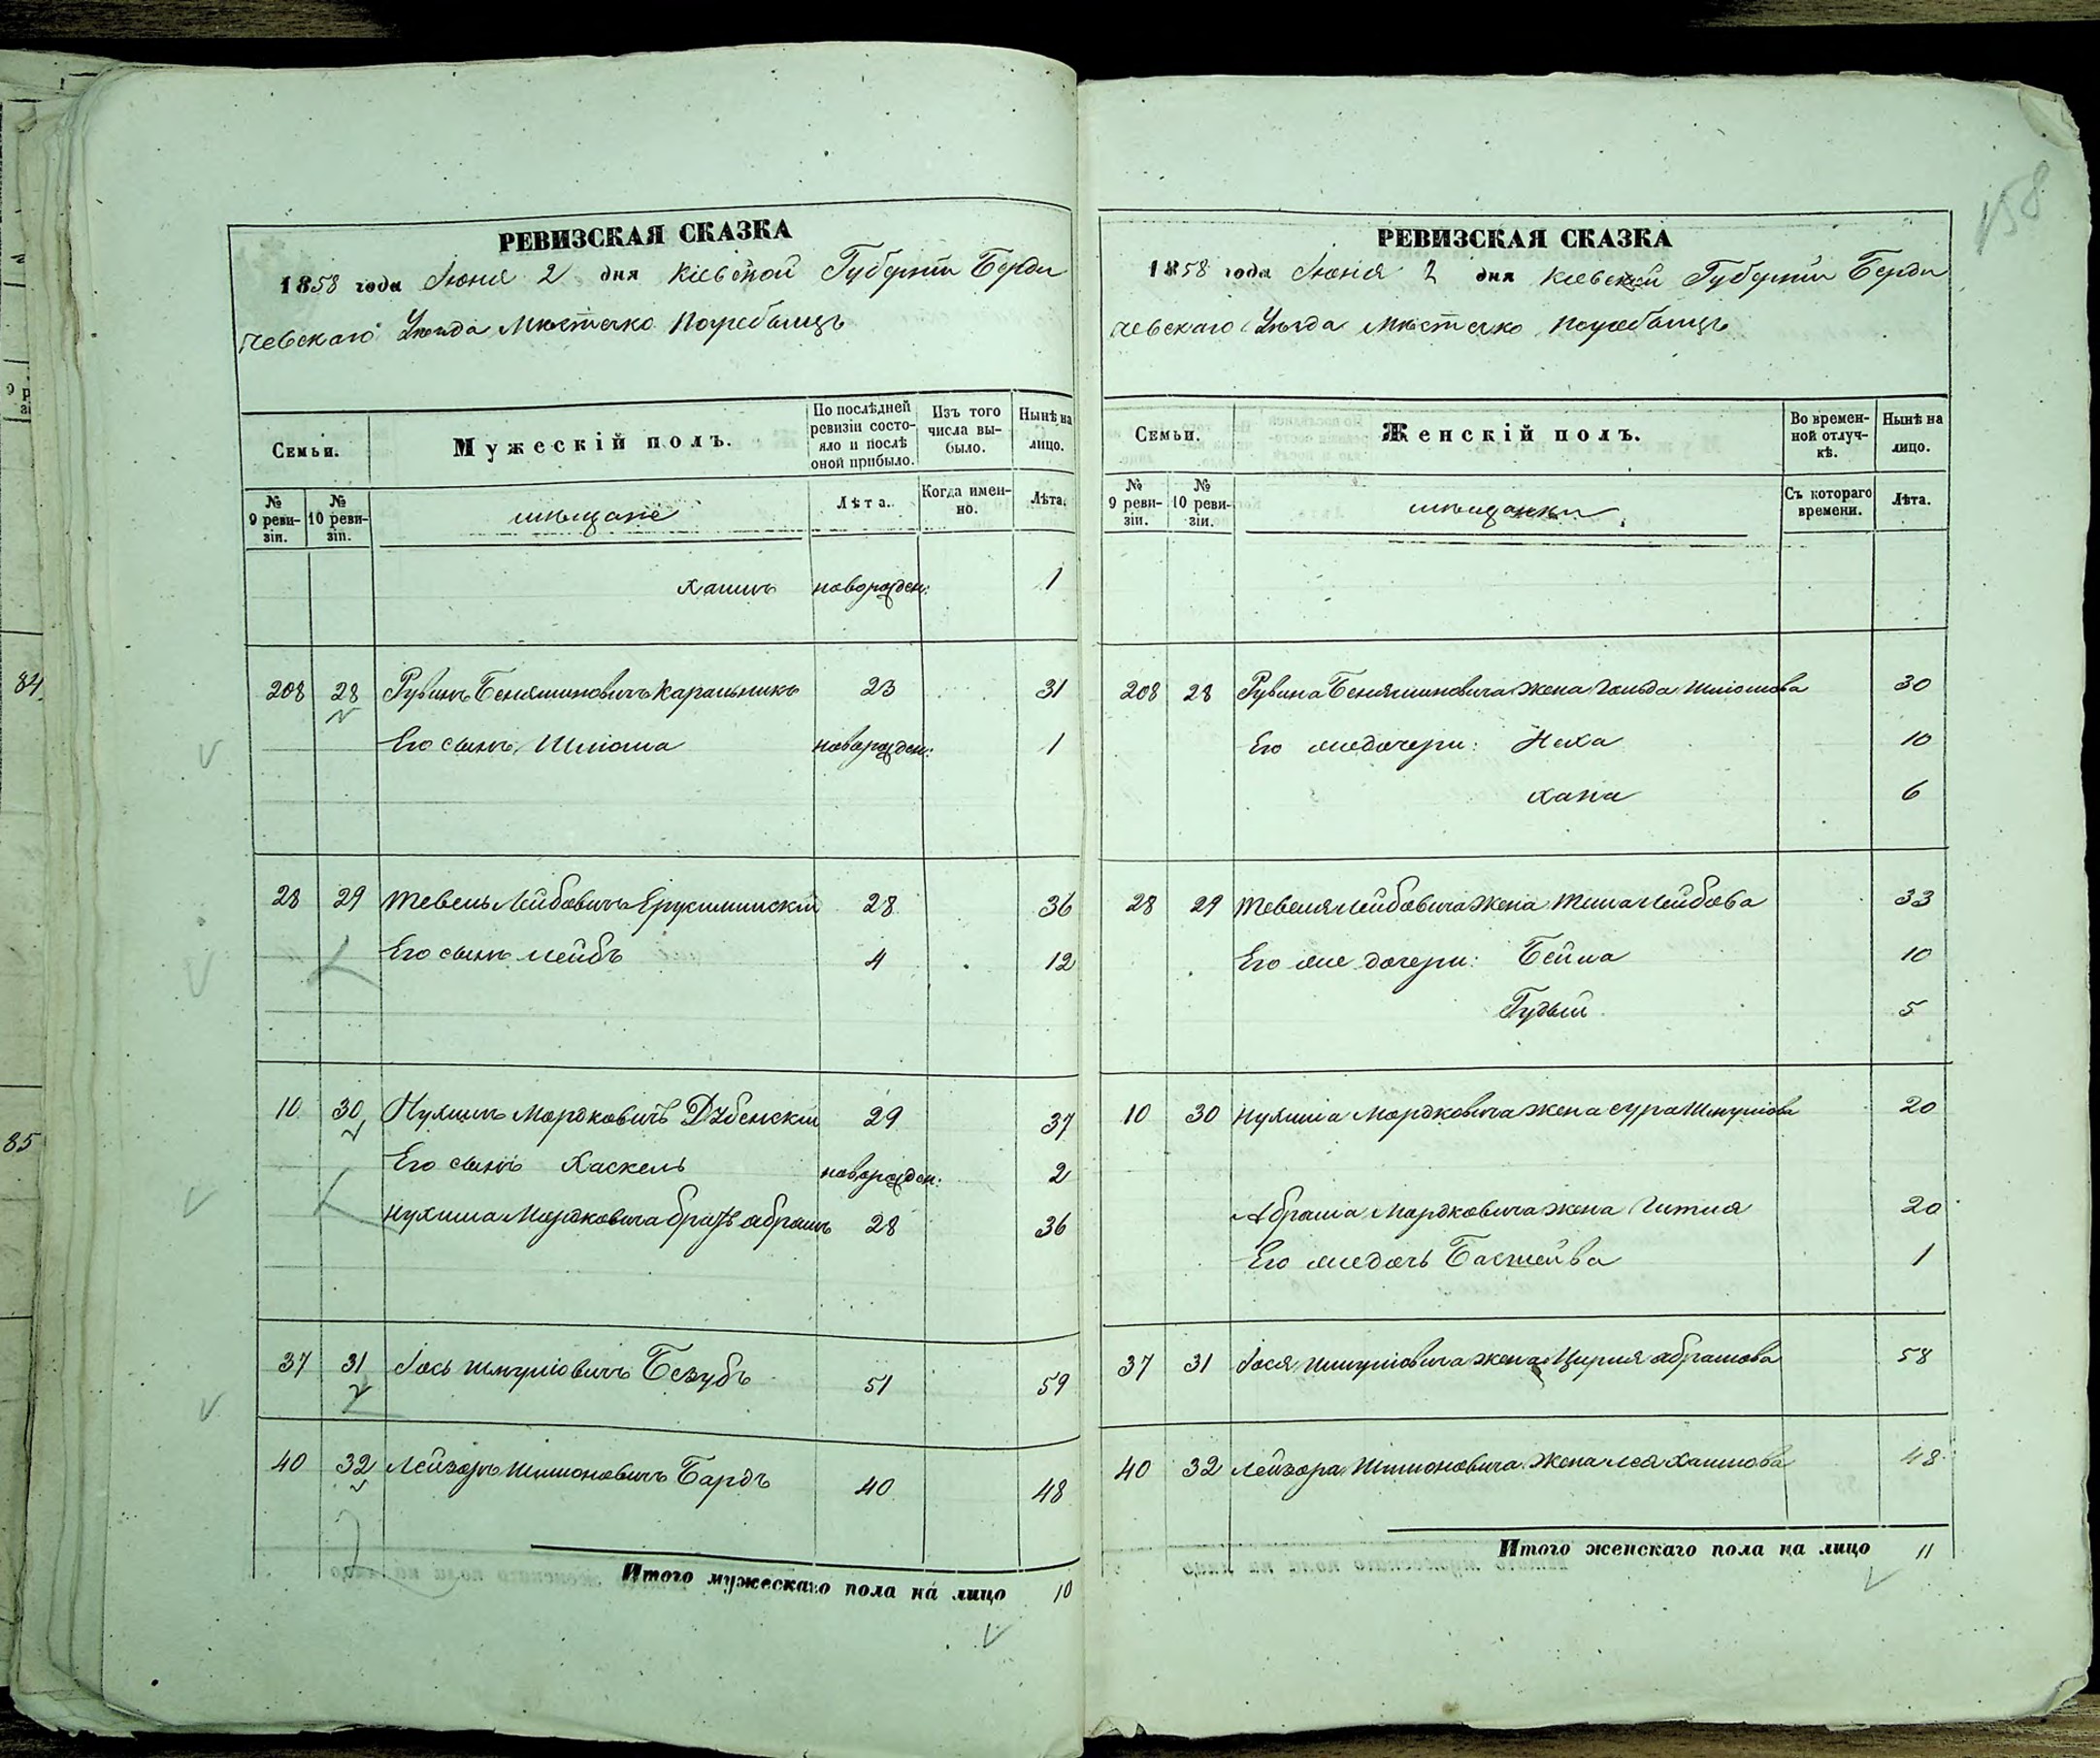 158
РЕВИЗСКАЯ СКАЗКА
1858 года Июня 2 дня Киевской Губернiи Берди
чевскаго Уѣзда Мѣстечко Погребищь
Семьи.
Мужескiй полъ.
По послѣдней ревизiи состояло и послѣ оной прибыло.
Изъ того числа выбыло.
Нынѣ на лицо.
№ 9 ревизiи.
№ 10 ревизiи.
мѣщане
Лѣта.
Когда именно.
Лѣта.
Хаимъ новорожден: 1
208 28 Рувинъ Беняминовичъ Каральникъ 23 31
Его сынъ Шлiома новорожден: 1
28 29 Тевель Лейбовичъ Ерукимискiй 28 36
Его сынъ Лейбъ 4 12
10 30 Нухимъ Мордковичъ Дубенскiй 29 37
Его сынъ Хаскель новорожден: 2
Нухима Мордковича братъ Абрамъ 28 36
37 31 Iось Шмулiовичъ Безубъ 51 59
40 32 Лейзоръ Шимоновичъ Бардъ 40 48
Итого мужескаго пола на лицо 10
РЕВИЗСКАЯ СКАЗКА
1858 года Июня 2 дня Киевской Губернiи Берди
чевскаго Уѣзда Мѣстечко Погребищь
Семьи.
Женскiй полъ.
Во временной отлучкѣ.
Нынѣ на лицо.
№ 9 ревизiи.
№ 10 ревизiи.
мѣщанки
Съ котораго времени.
Лѣта.
208 28 Рувина Беняминовича жена Гольда Шлiомова 30
Его же дочери: Неха 10
Хана 6
28 29 Тевеля Лейбовича жена Лейбова 33
Его же дочери: Бейла 10
5
10 30 Нухима Мордковича жена Сура Шмулiова 20
Абрама Мордковича жена Гитля 20
Его же дочь Басшейва 1
37 31 Iося Шмулiовича жена Цирля Абрамова 58
40 32 Лейзора Шимоновича жена Лея Хаимова 48
Итого женскаго пола на лицо 11
84
85